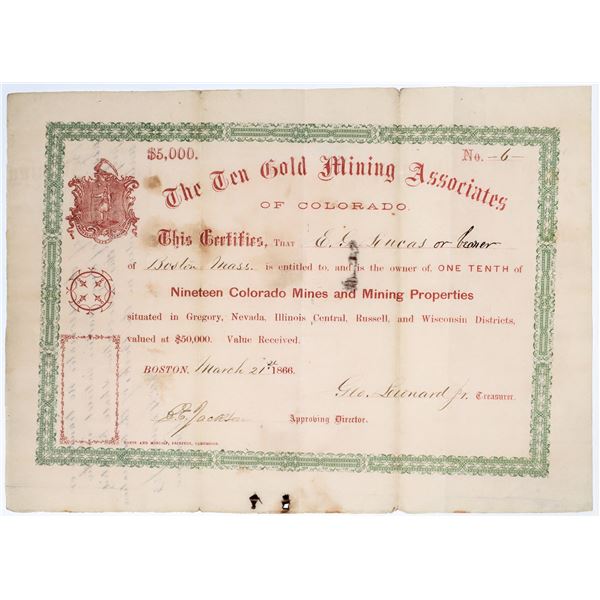 $5,000.
No. -6-
The Ten Gold Mining Associates
OF COLORADO.
This Certifies, THAT E. G. Lucas or bearer
of Boston Mass. is entitled to, and is the owner of ONE TENTH of
Nineteen Colorado Mines and Mining Properties
situated in Gregory, Nevada, Illinois Central, Russell, and Wisconsin Districts,
valued at $50,000. Value Received.
BOSTON. March 21st 1866.
Geo. Leonard Jr. Treasurer.
Jackson Approving Director.
PRINTERS, CAMBRIDGE.